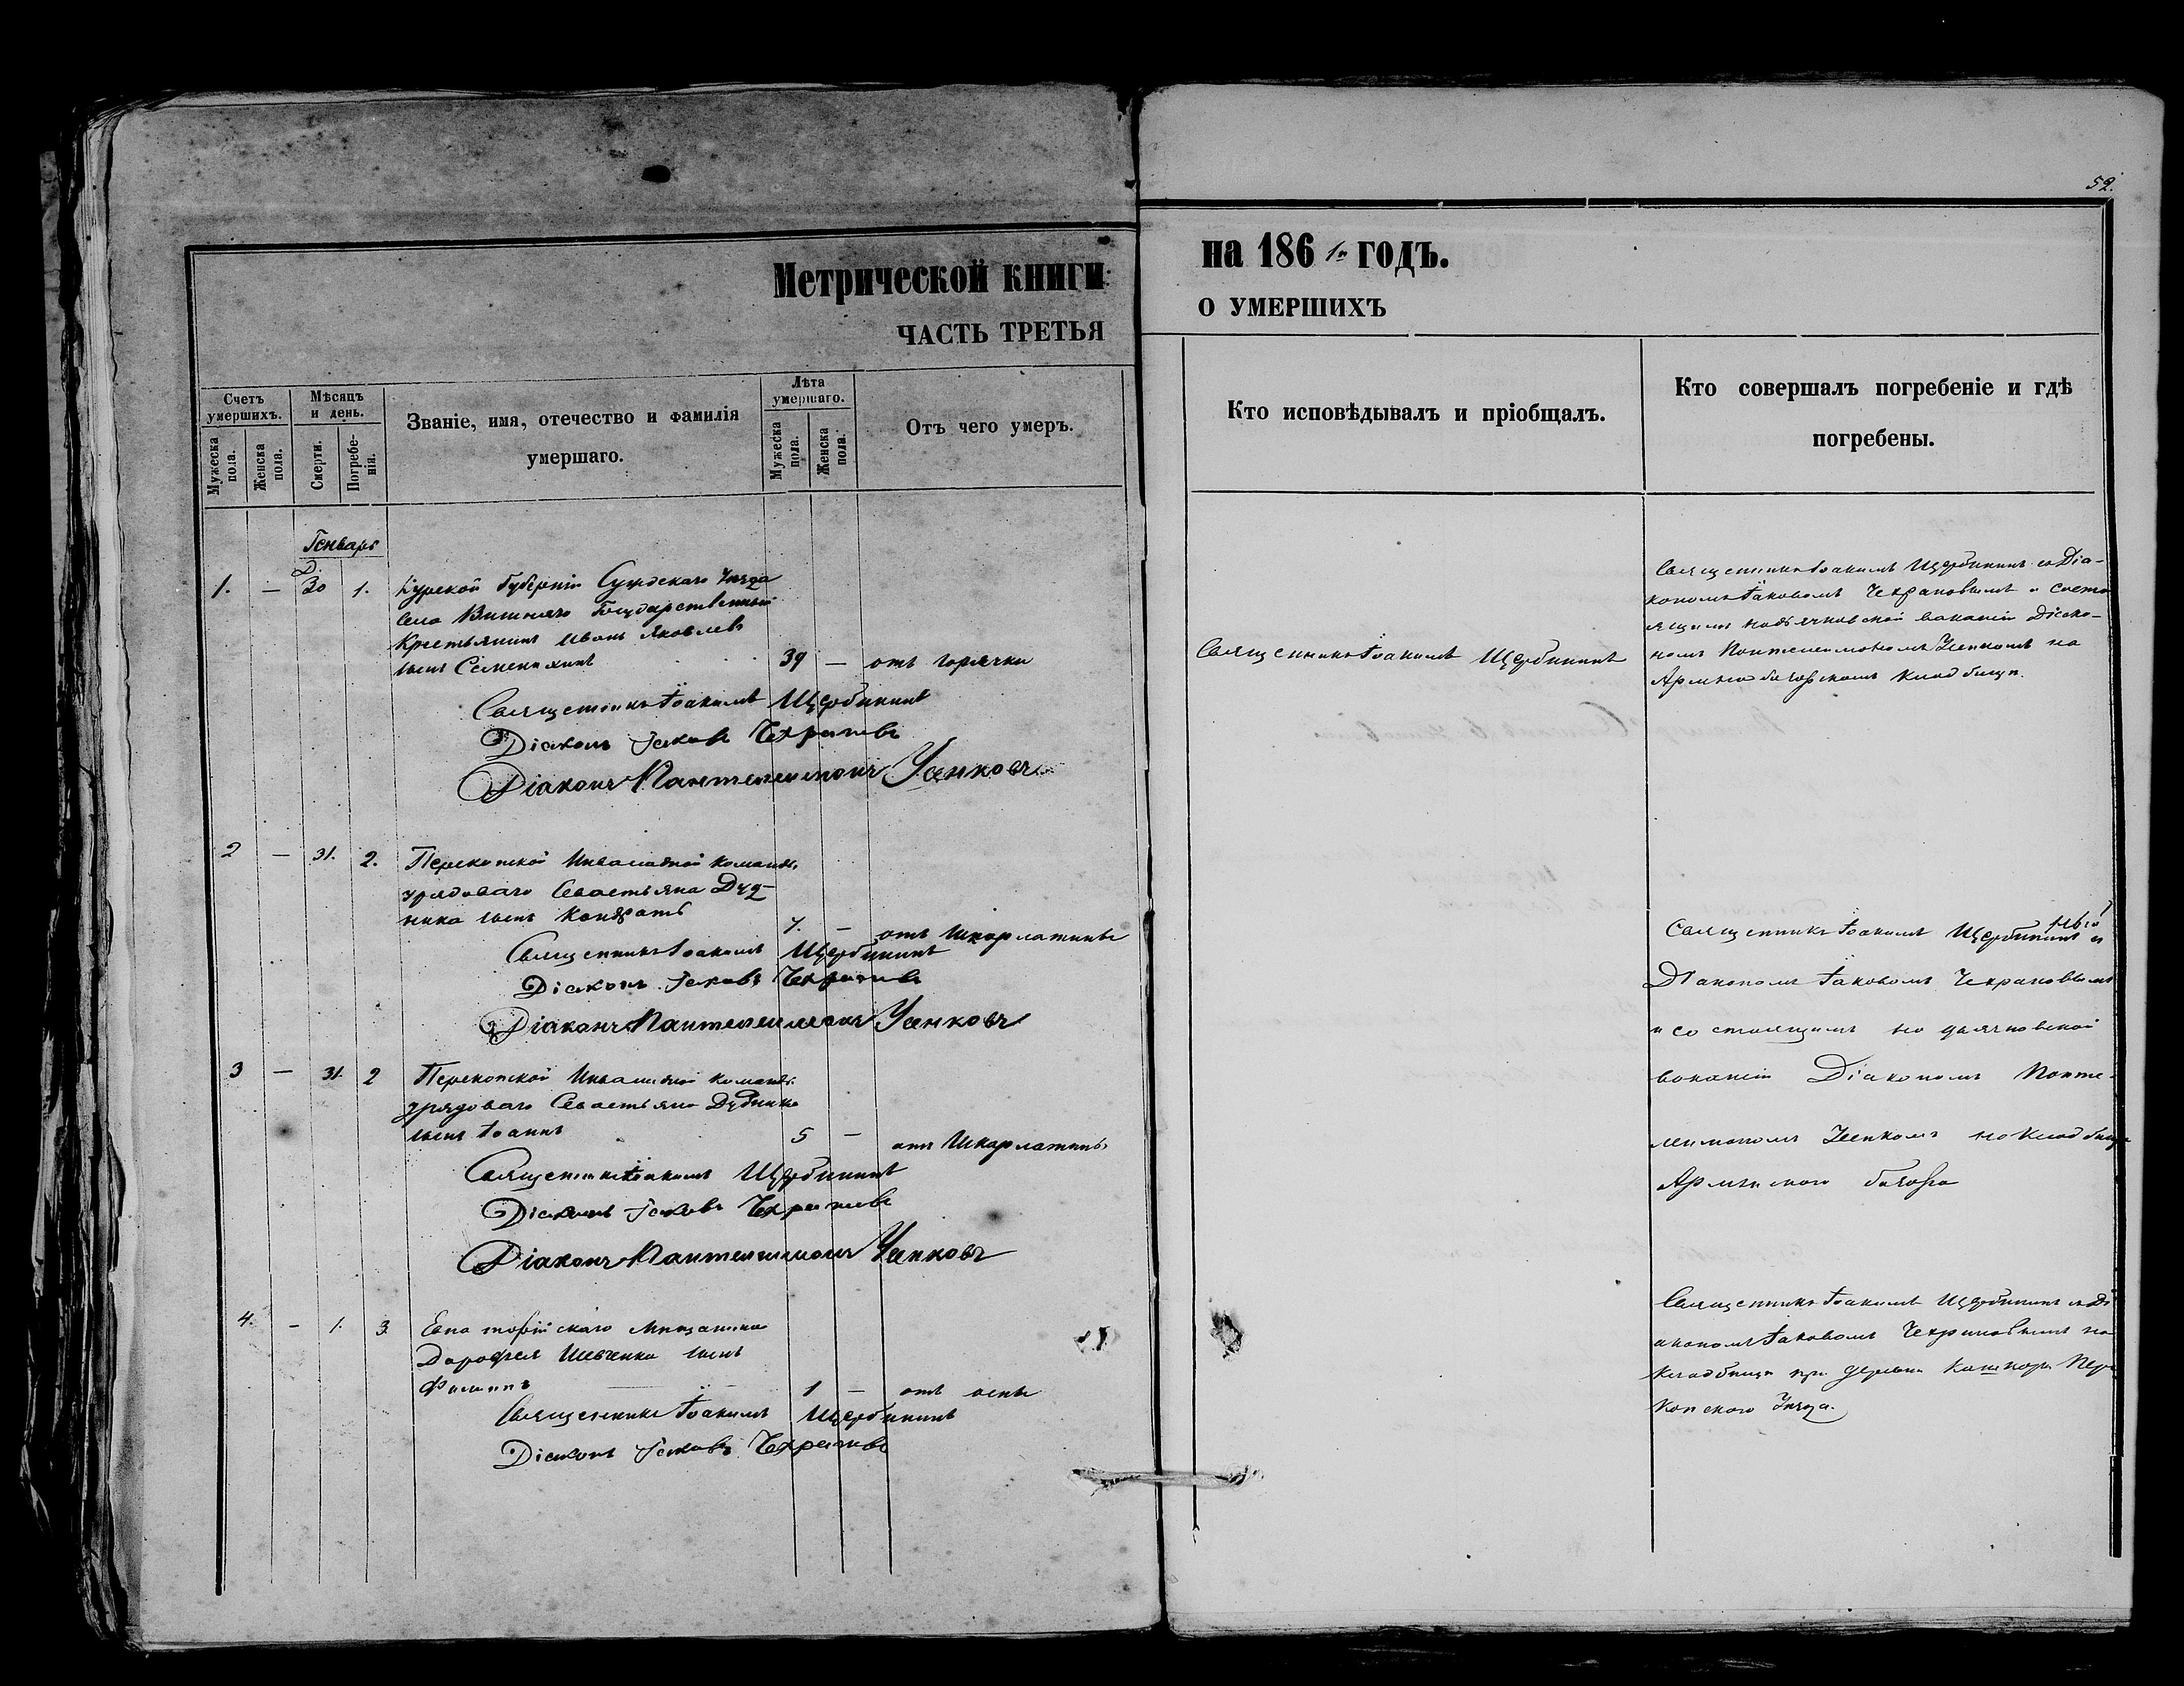 52.
Метрической книги
ЧАСТЬ ТРЕТЬЯ
на 186 1го годъ.
О УМЕРШИХЪ
Счетъ умершихъ.
Мужеска пола.
Женска пола.
Мѣсяцъ и день.
Смерти.
Погребенія.
Званіе, имя, отечество и фамилія
умершаго.
Лѣта умершаго.
Мужеска пола.
Женска пола.
Отъ чего умеръ.
Кто исповѣдывалъ и пріобщалъ.
Кто совершалъ погребеніе и гдѣ
погребены.
Генварь
Д.
1. — 30 1. Курской Губерніи Суджскаго Уѣзда
села Вишняго Государственный
Крестьянинъ Иванъ Яковлевъ
сынъ 39 — отъ горячки
Священникъ Іоакимъ Щербининъ
Діаконъ Іаковъ Чехрановъ
Діаконъ Пантелеимонъ Уенковъ
Священникъ Іоакимъ Щербининъ
Священникъ Іоакимъ Щербининъ со Діа-
кономъ Іаковомъ Чехрановымъ и состо
ящимъ на дьячковской ваканіи Діако-
номъ Пантелеимономъ на
Армянобазарскомъ кладбищѣ.
2 — 31. 2. Перекопской Инвалидной команды
рядоваго Севастьяна Дуд-
ника сынъ Кондратъ 7. — отъ Шкарлатины
Священникъ Іоакимъ Щербининъ
Діаконъ Іаковъ Чехрановъ
Діаконъ Пантелеимонъ Уенковъ
3 — 31. 2 Перекопской Инвалидной команды
рядоваго Севастьяна Дудника
сынъ Іоаннъ 5 — отъ Шкарлатины
Священникъ Іоакимъ Щербининъ
Діаконъ Іаковъ Чехрановъ
Діаконъ Пантелеимонъ Уенковъ
Священникъ Іоакимъ Щербининъ съ
Діакономъ Іаковомъ Чехрановымъ
и состоящимъ на дьячковской
ваканіи Діакономъ Панте-
леимономъ на кладбищѣ
Армянскаго базара
4. — 1. 3. Евпаторійскаго Мѣщанина
Дорофея Шевченка сынъ
Филиппъ 1 — отъ оспы
Священникъ Іоакимъ Щербининъ
Діаконъ Іаковъ Чехрановъ
Священникъ Іоакимъ Щербининъ съ Ді
акономъ Іаковомъ Чехрановымъ на
кладбищѣ при деревни Пере
копскаго Уѣзда.